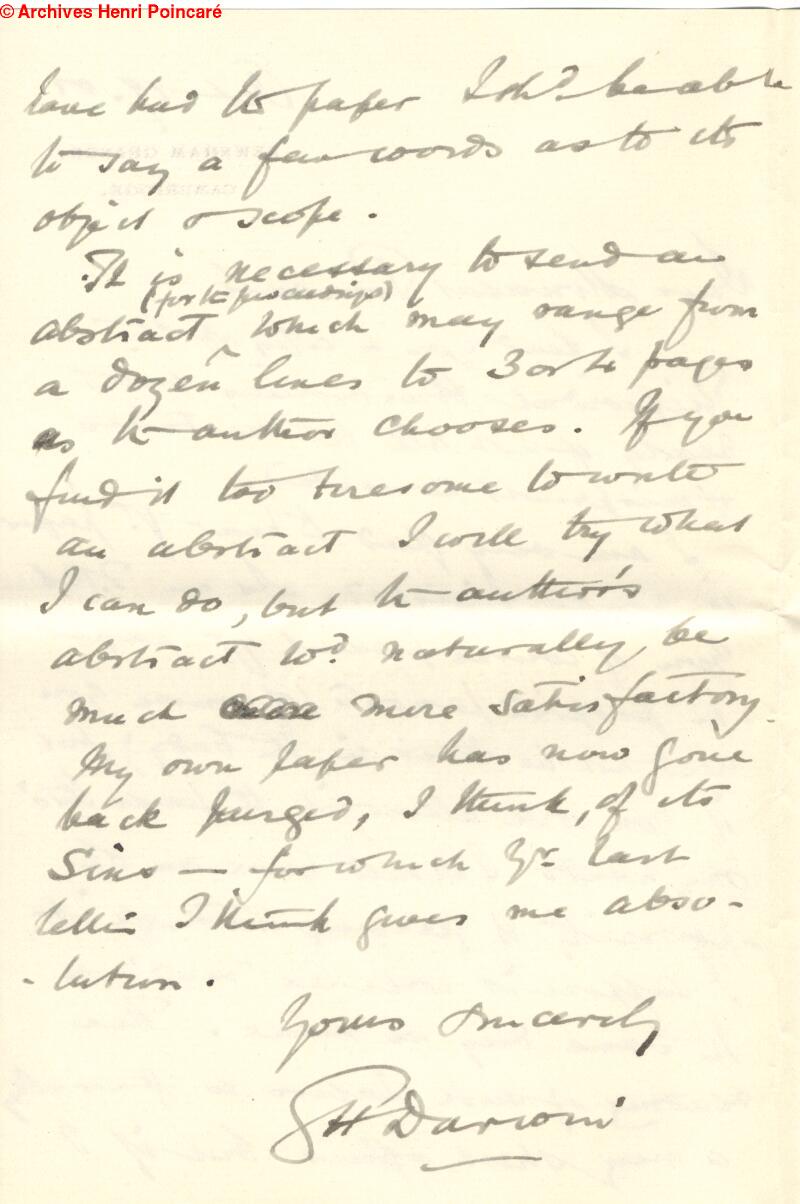 © Archives Henri Poincaré
have had the paper I shd. be able
to say a few words as to its
object & scope.
It is necessary to send an
(for the proceedings)
abstract, which may range from
a dozen lines to 3 or 4 pages
as the author chooses. If you
find it too tiresome to write
an abstract I will try what
I can do, but the author's
abstract wd. naturally be
much more satisfactory.
My own paper has now gone
back purged, I think, of its
sins — for which yr. last
letter I think gives me abso-
-lution.
Yours sincerely
G H Darwin